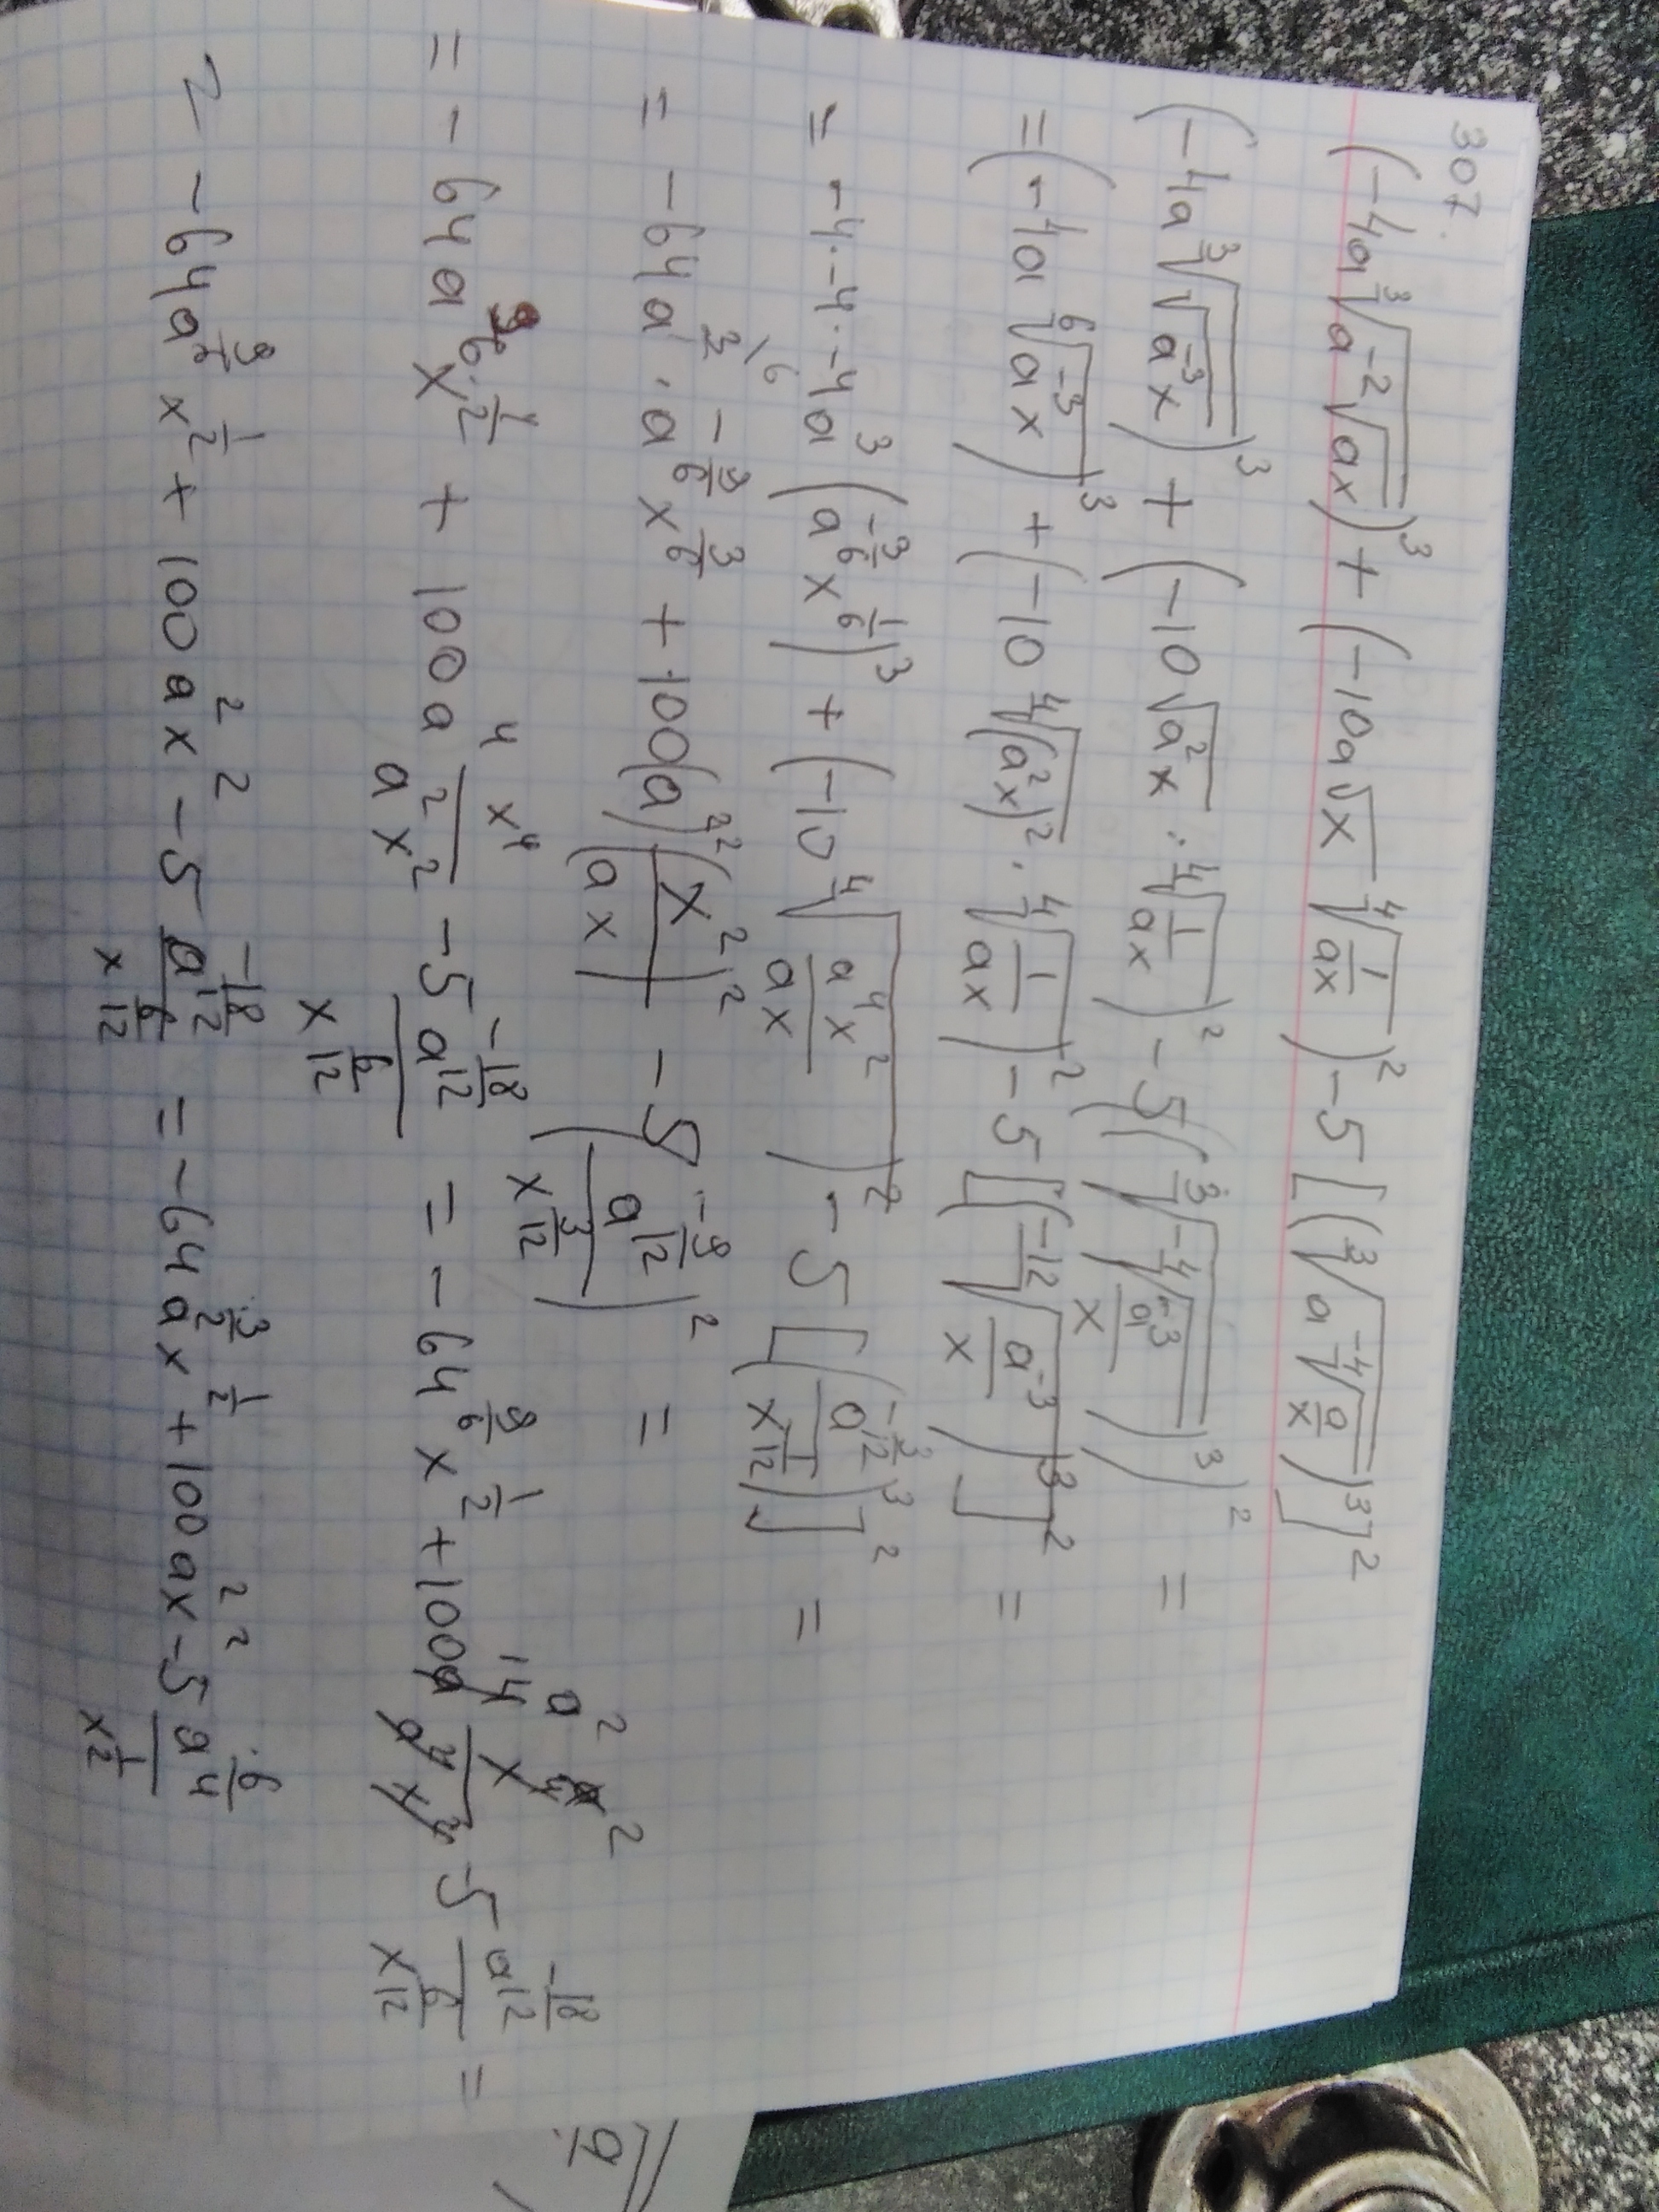 307.
(-4a∛(a^-2 √(ax)))^3 + (-10a√x ∜(1/(ax)))^2 - 5[(∛(a^-4 √(a/x)))^3]^2
(-4a∛(√(a^-3 x)))^3 + (-10√(a^2 x) · ∜(1/(ax)))^2 - 5((∛(^-4√(a^-3/x)))^3)^2 =
= (-4a ⁶√(a^-3 x))^3 + (-10 ∜((a^2 x)^2) · ∜(1/(ax)))^2 - 5[(^-12√(a^-3/x))^3]^2 =
= -4·-4·-4a^3 (a^(-3/6) x^(1/6))^3 + (-10 ∜(a^4 x^2/(ax)))^2 - 5[(a^(-3/12)/x^(1/12))^3]^2 =
= -64a^3 · a^(-9/6) x^(3/6) + 100(a)^2 (x^2/(ax))^2 - 5(a^(-9/12)/x^(3/12))^2 =
= -64a^(9/6) x^(1/2) + 100a^4 x^4/(a^2 x^2) - 5a^(-18/12)/x^(6/12) = -64^(9/6) x^(1/2) + 100 a^2 x^2 - 5 a^(-18/12)/x^(6/12) =
-64a^(9/6) x^(1/2) + 100a^2x^2 - 5a^(-18/12)/x^(6/12) = -64a^(3/2) x^(1/2) + 100a^2x^2 - 5a^(-6/4)/x^(1/2)